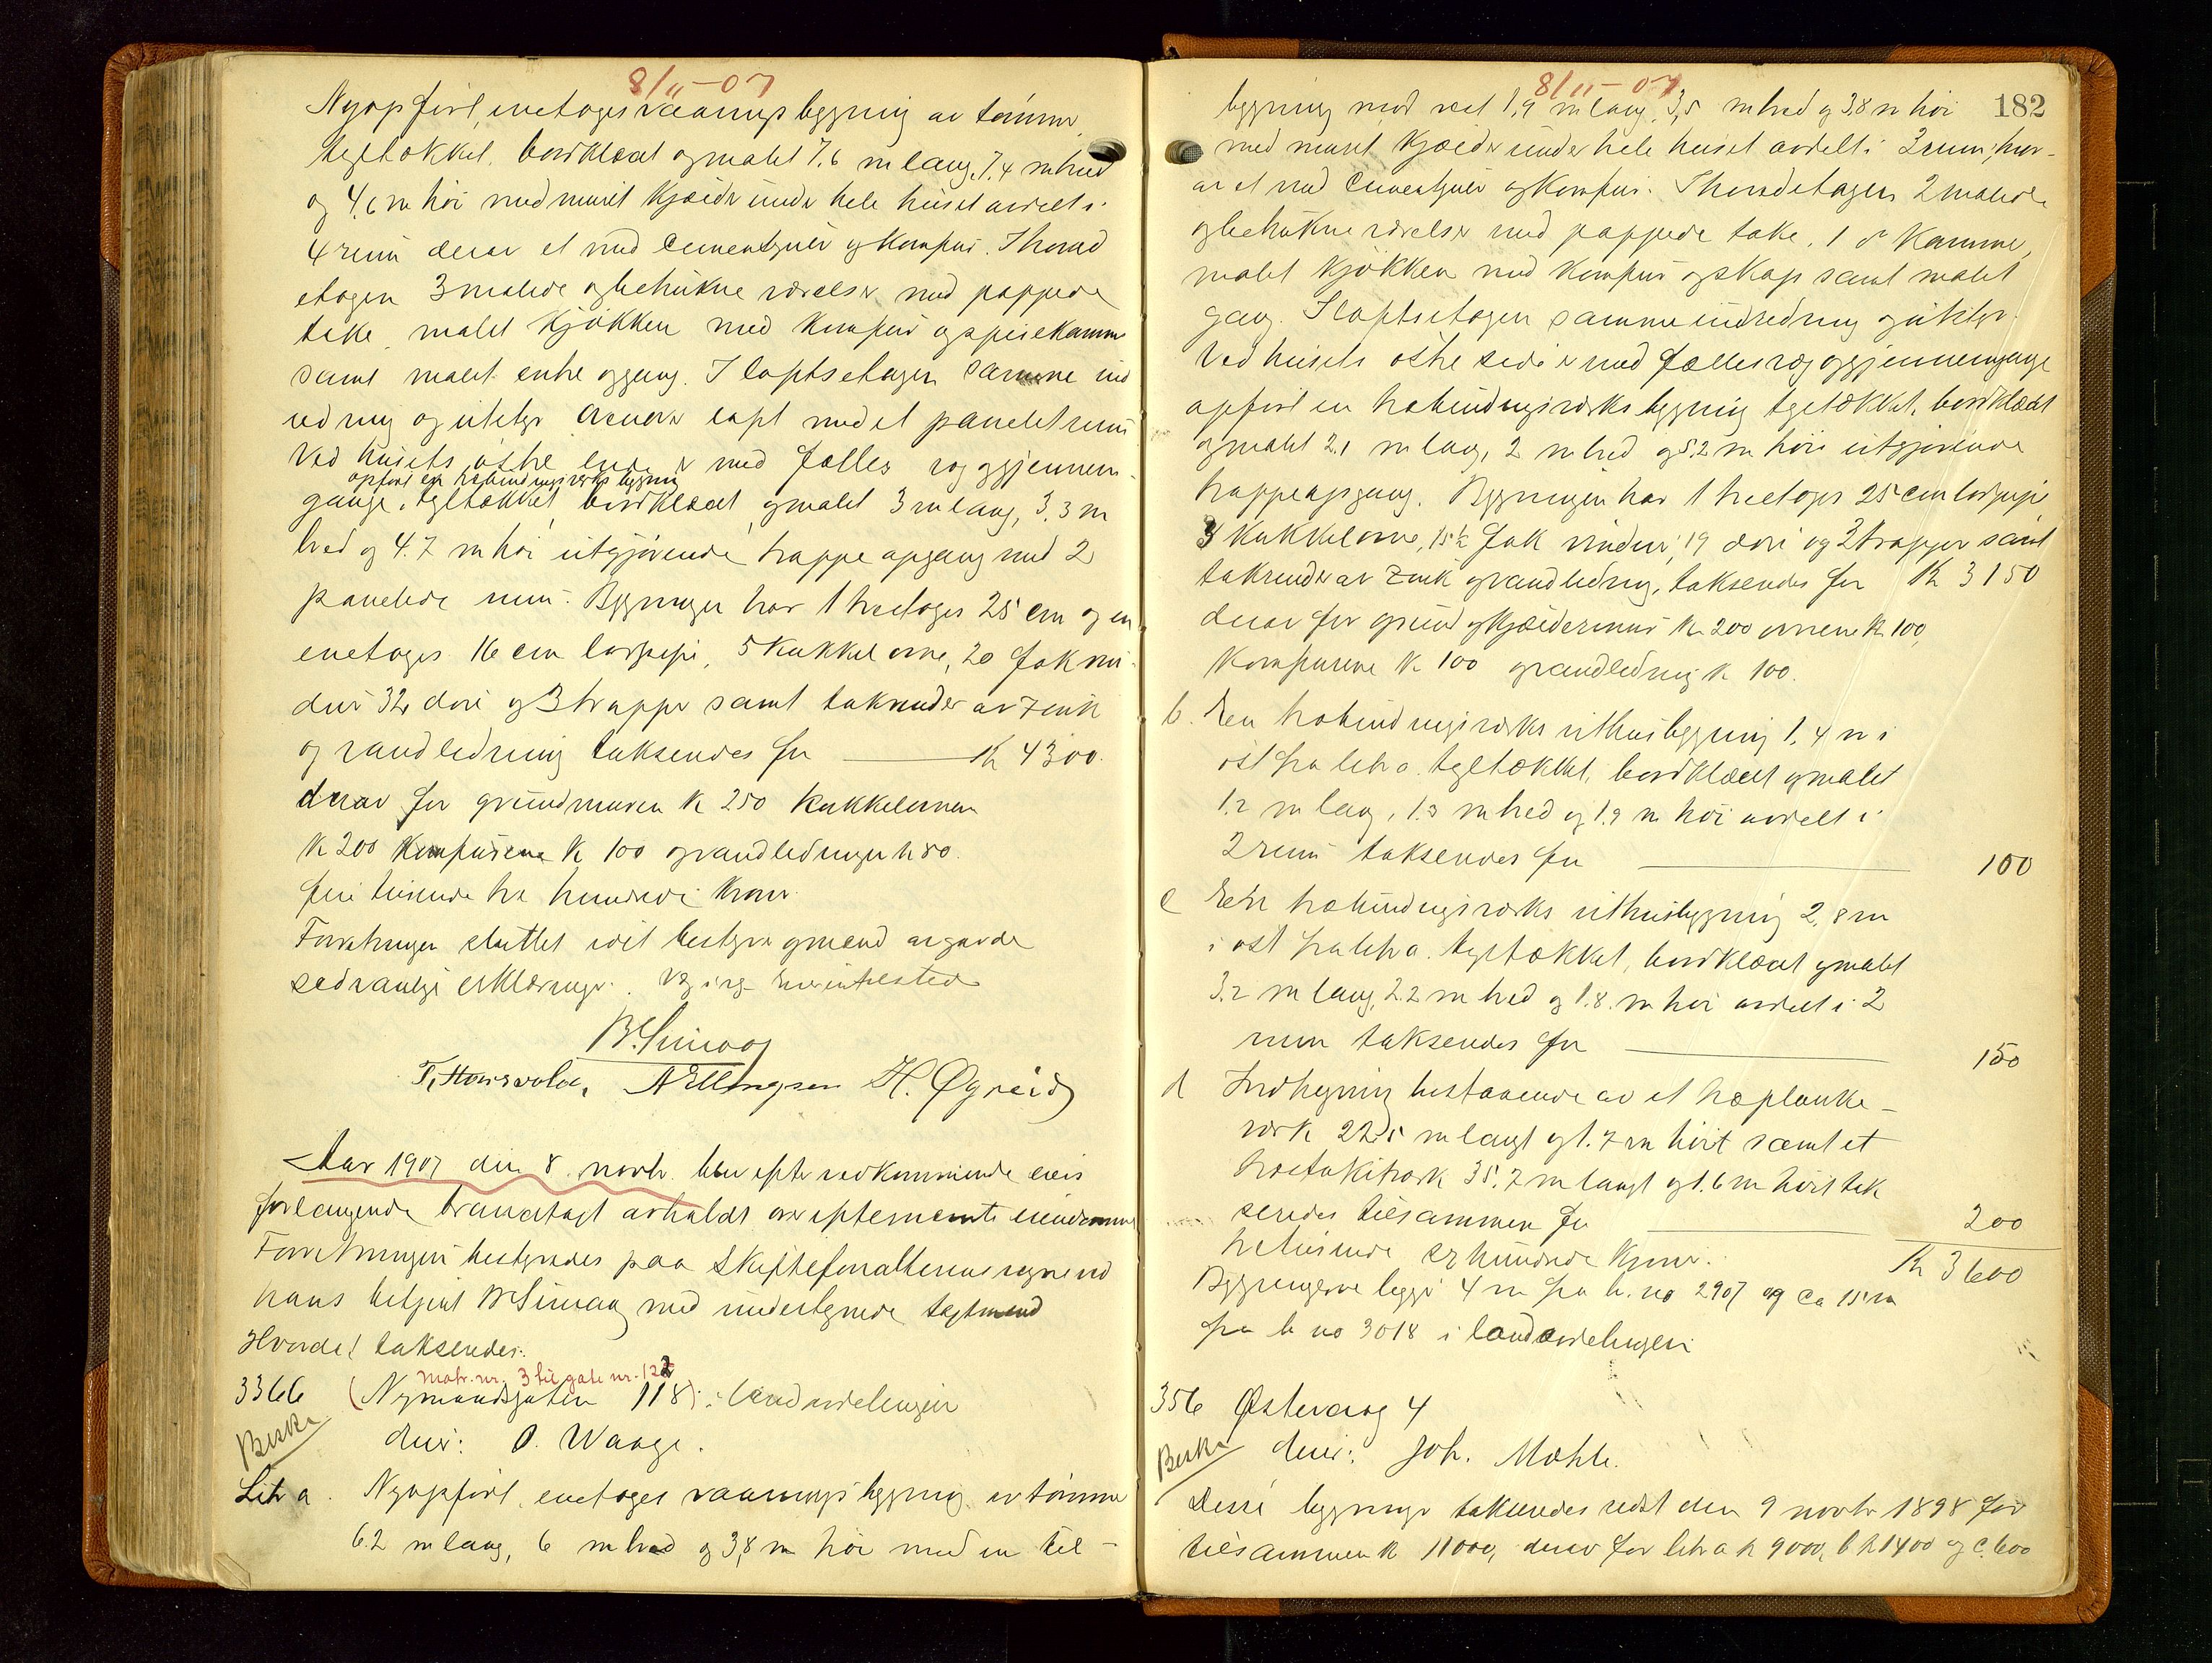 8/11-07
Nyopført, enetages vaaningsbygning av tømmer
tegltækket, bordklædt og malet 7.6 m lang, 7.4 m bred
og 4,6 m høi med muret kjælder under hele huset avdelt i
4 rum derav et med cementgulv og komfur. I hoved
etagen 3 malede og betrukne værelser med pappede
take, malet kjøkken med komfur og spisekammer
samt malet entre og gang. I loftsetagen samme ind
redning og utstyr derover loft med et panelet rum
Ved husets østre ende er med fælles væg og gjennem-
opført en træbindingsverks bygning
gange, tegltækket bordklædt og malet 3 m lang, 3.3 m
bred og 4.7 m høi utgjørende trappeopgang med 2
panelede rum. Bygningen har 1 treetages 25 cm og en
enetages 16 cm rørpipe, 5 kakkelovne, 20 fak vin-
duer 32 døre og 3 trapper samt takrender av zink
og vandledning taksendes for K 4300.
derav for grundmuren K 250 kakkelovnen
K 200 komfurene K 100 og vandledningen k 80.
fire tusinde tre hundrede kroner
Forretningen sluttet idet bestyrer og mænd avgavde
sedvanlige erklæringer.
B. Simoog
T. Housvold, A Ellingsen H. Øgreid
Aar 1907 den 8. novbr. blev efter vedkommende eiers
forlangende branntakst avholdt over efternævnte eiendomme
Forretningen bestyredes paa Skifteforvalterens vegne ved
hans betjent B Simoog med undertegnede takstmænd
Hvorda taksendes:
Matr. nr. 3 til gate nr. 122
3366 (Nymandsgaten 118) i landavdelingen
Beskr.
eier: O. Waage.
Litr a. Nyopført, enetages vaaningsbygning av tømmer
6.2 m lang, 6 m bred og 3,8 m høi med en til-
8/11-07
182
bygning mod vest 1,9 m lang, 3,5 m bred og 3.8 m høi
med muret kjælder under hele huset avdelt i 3 rum, hvor-
av et med cementgulv og komfur. I hovedetagen 2 malede
og betrukne værelser med pappede take, 1 do kammer,
malet kjøkken med komfur og skap samt malet
gang. I loftsetagen samme indredning og utstyr.
Ved husets østre side er med fælles væg og gjennemgange
opført en træbindingsværks bygning tegltækket, bordklædt
og malet 2,1 m lang, 2 m bred og 5.2 m høi utgjørende
trappeopgang. Bygningen har 1 treetages 25 cm rørpipe,
3 kakkelovne, 15½ fak vinduer, 19 døre og 2 trapper samt
takrender av zink og vandledning, taksendes for K 3150
derav for grund og kjældermur K 200 ovnene K 100,
komfurene K 100 og vandledning K 100.
b. En træbindingsværks uthusbygning 1,4 m i
øst fra litr a. tegltækket, bordklædt og malet
1.2 m lang, 1.3 m bred og 1.9 m høi avdelt i
2 rum taksendes for 100
c En træbindingsværks uthusbygning 2,8 m
i øst fra litr a. tegltækket, bordklædt og malet
3.2 m lang, 2.2 m bred og 1.8. m høi avdelt i 2
rum taksendes for 150
d Indhegning bestaaende av et træplanke-
værk 22.5 m langt og 1.7 m høit samt et
træstakitværk 35.7 m langt og 1.6 m høit tak
seredes tilsammen for 200
tretusinde sekshundrede kroner. K 3600
Bygningerne ligge 4 m fra br. no 2907 og ca 15 m
fra br no 3018 i landavdelingen
356 Østervaag 4
Beskr.
eier: Joh. Mæhle.
Disse bygninger takseredes sidst den 9 novbr 1898 for
tilsammen K 11000, derav for litr a K 9000, b K 1400 og c. 600